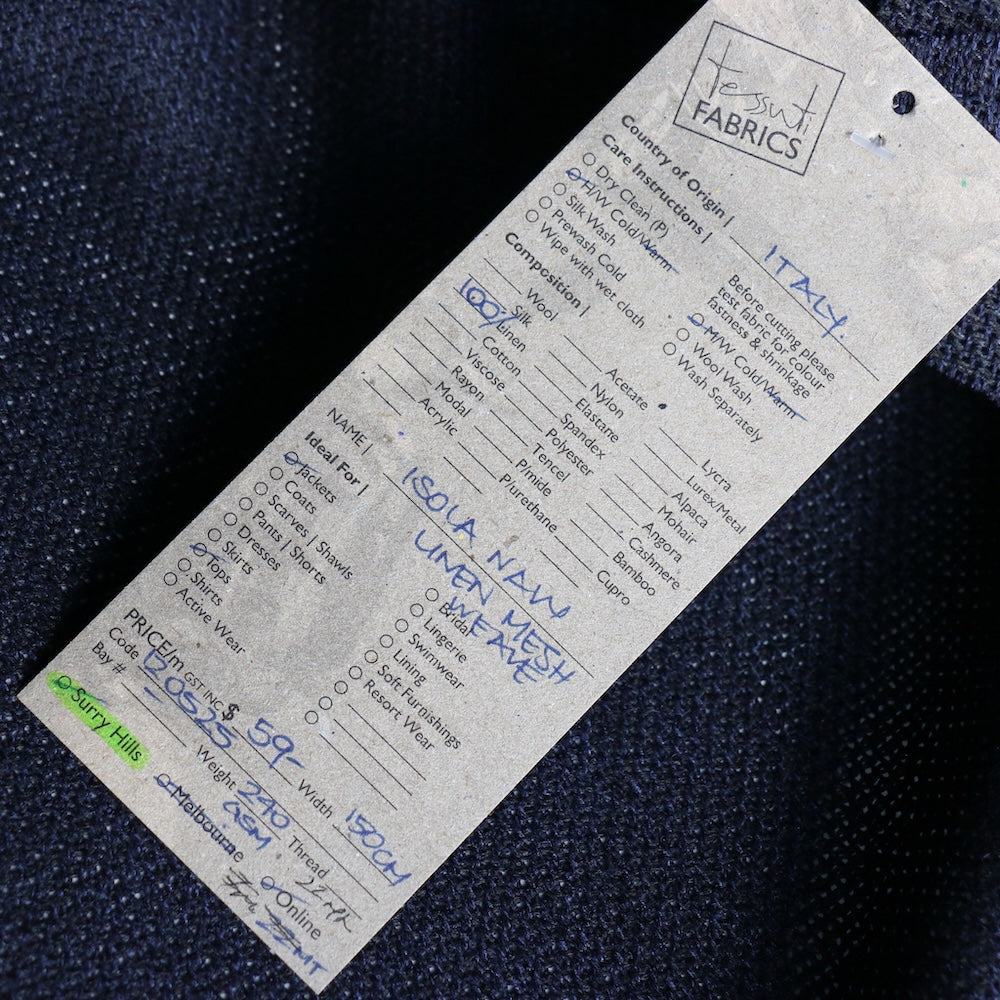 Tessuti
FABRICS
Country of Origin | ITALY.
Care Instructions |
Dry Clean (P)
H/W Cold/Warm
Silk Wash
Prewash Cold
Wipe with wet cloth
Before cutting please
test fabric for colour
fastness & shrinkage
M/W Cold/Warm
Wool Wash
Wash Separately
Composition |
Wool
Silk
100% Linen
Cotton
Viscose
Rayon
Modal
Acrylic
Acetate
Nylon
Elastane
Spandex
Polyester
Tencel
P/mide
P/urethane
Lycra
Lurex/Metal
Alpaca
Mohair
Angora
Cashmere
Bamboo
Cupro
NAME | ISOLA NAVY
LINEN MESH
WEAVE
Ideal For |
Jackets
Coats
Scarves | Shawls
Pants | Shorts
Dresses
Skirts
Tops
Shirts
Active Wear
Bridal
Lingerie
Swimwear
Lining
Soft Furnishings
Resort Wear
PRICE/m GST INC $ 59- Width 150CM
Code 120525 Weight 240 GSM Thread
Bay #
Surry Hills Melbourne Online
22MT